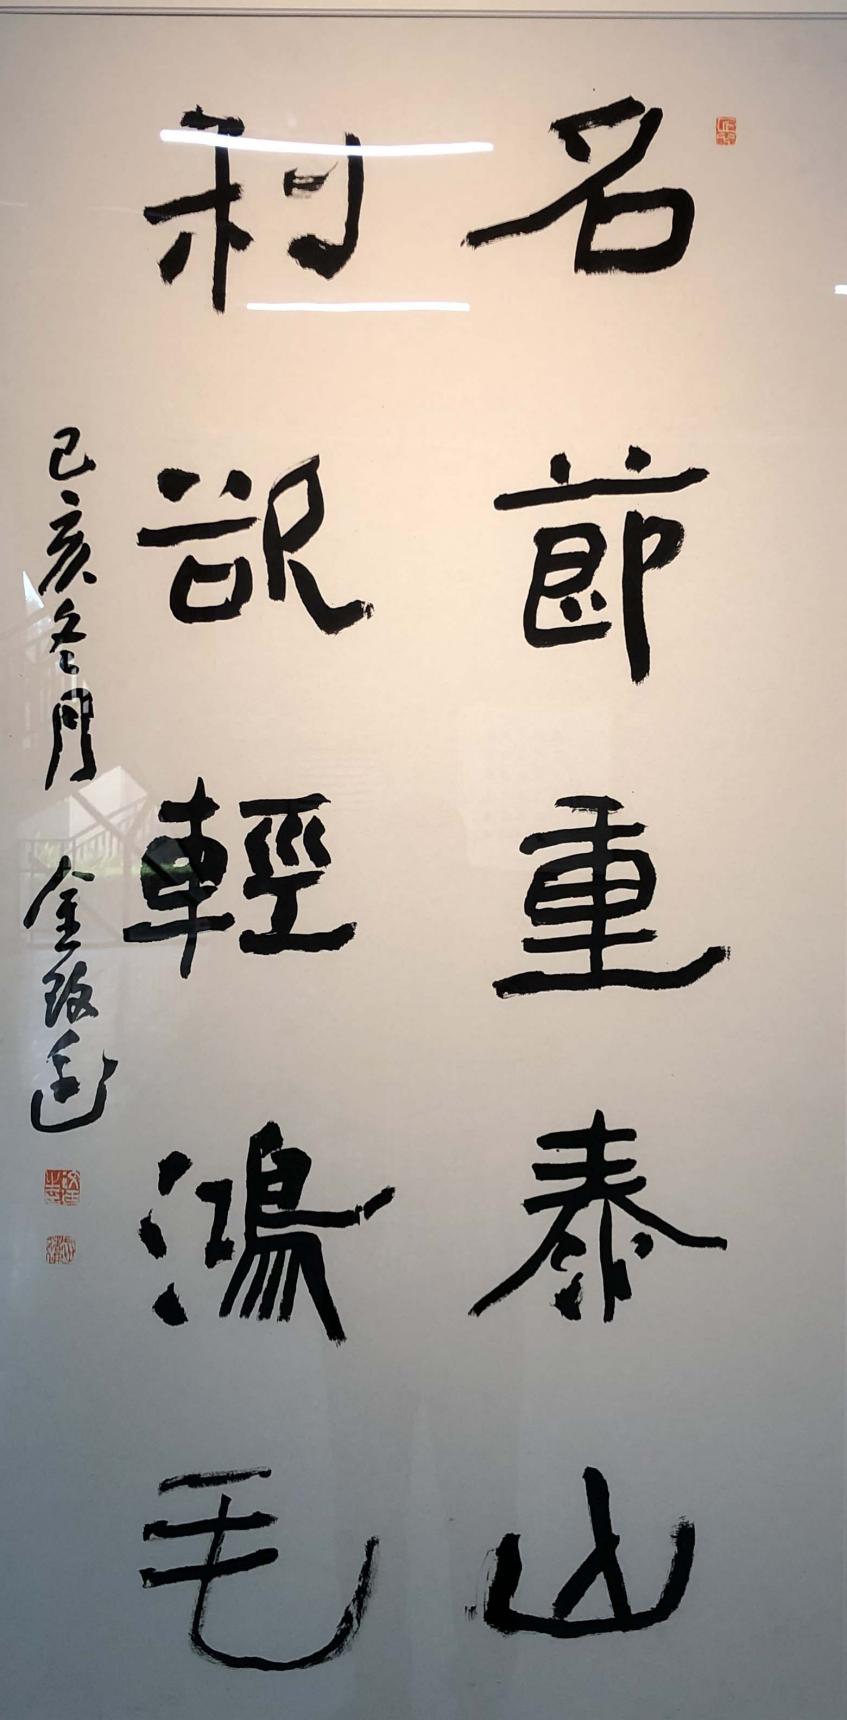 名節重泰山
利欲輕鴻毛
己亥冬月 金